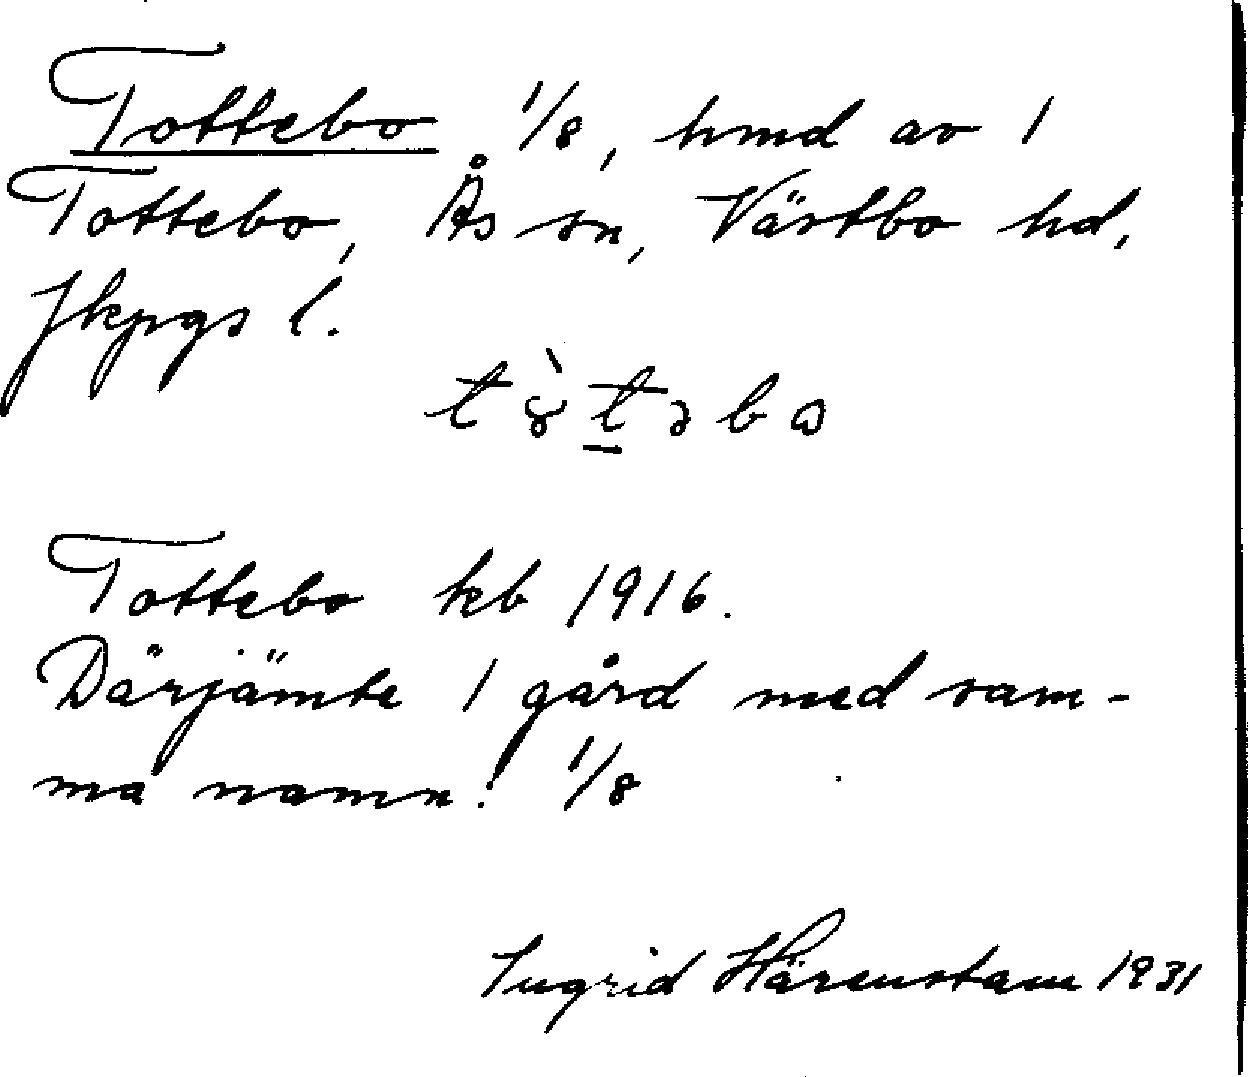 Tottebo 1/8, hmd av 1
Tottebo, Ås sn, Västbo hd,
Jkpgs l.
Tottebo kb 1916.
Därjämte 1 gård med sam-
ma namn. 1/8
Ingrid Härenstam 1931